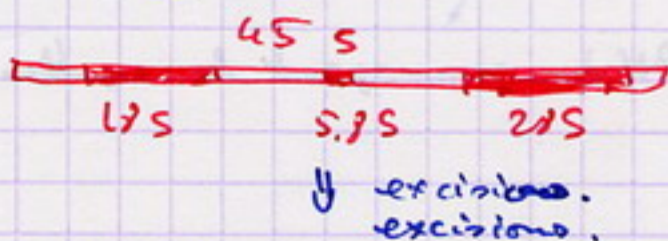 45 S
18 S 5.8 S 28 S
⇓ excisiono.
excisiono.